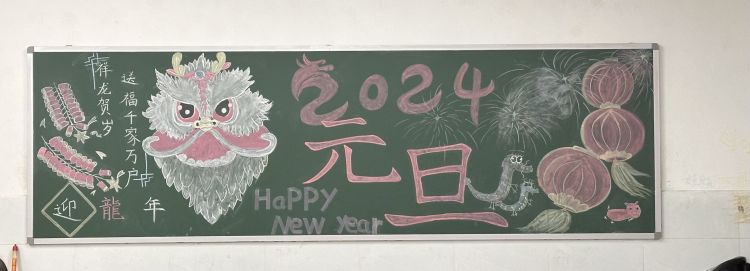 祥龙贺岁
送福千家万户
迎龍年
2024
元旦
HaPPY
New Year